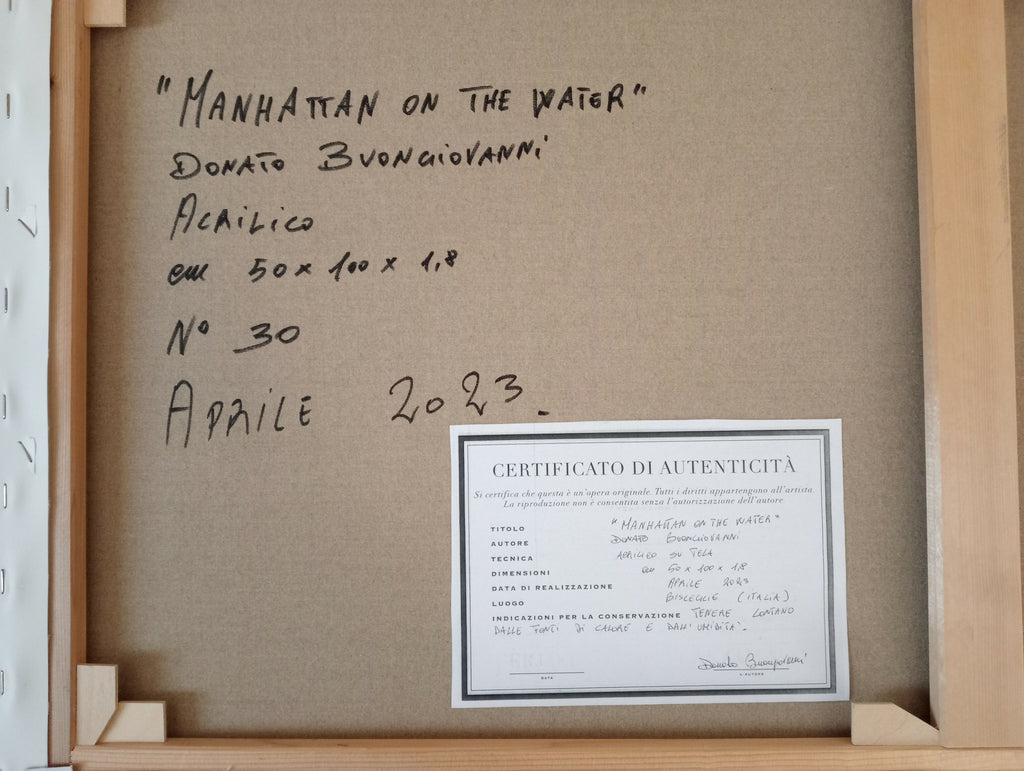 "MANHATTAN ON THE WATER"
DONATO BUONGIOVANNI
ACRILICO
cm 50 x 100 x 1,8
N° 30
APRILE 2023.
CERTIFICATO DI AUTENTICITÀ
Si certifica che questa è un'opera originale. Tutti i diritti appartengono all'artista.
La riproduzione non è consentita senza l'autorizzazione dell'autore
TITOLO "MANHATTAN ON THE WATER"
AUTORE DONATO BUONGIOVANNI
TECNICA ACRILICO SU TELA
DIMENSIONI cm 50 x 100 x 1,8
DATA DI REALIZZAZIONE APRILE 2023
LUOGO BISCEGLIE (ITALIA)
INDICAZIONI PER LA CONSERVAZIONE TENERE LONTANO
DALLE FONTI DI CALORE E DALL'UMIDITA'.
Donato Buongiovanni
DATA L'AUTORE